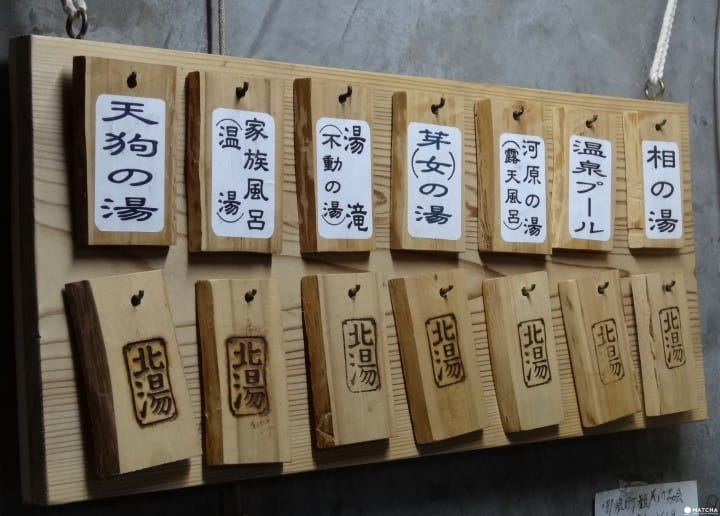 天狗の湯
家族風呂
（温湯）
湯滝
（不動の湯）
芽（女）の湯
河原の湯
（露天風呂）
温泉プール
相の湯
北湯
北湯
北湯
北湯
北湯
北湯
北湯
MATCHA